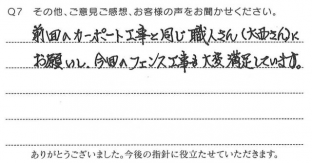 Q7 その他、ご意見ご感想、お客様の声をお聞かせください。
前回のカーポート工事と同じ職人さん(大西さん)に
お願いし、今回のフェンス工事も大変満足しています。
ありがとうございました。今後の指針に役立たせていただきます。